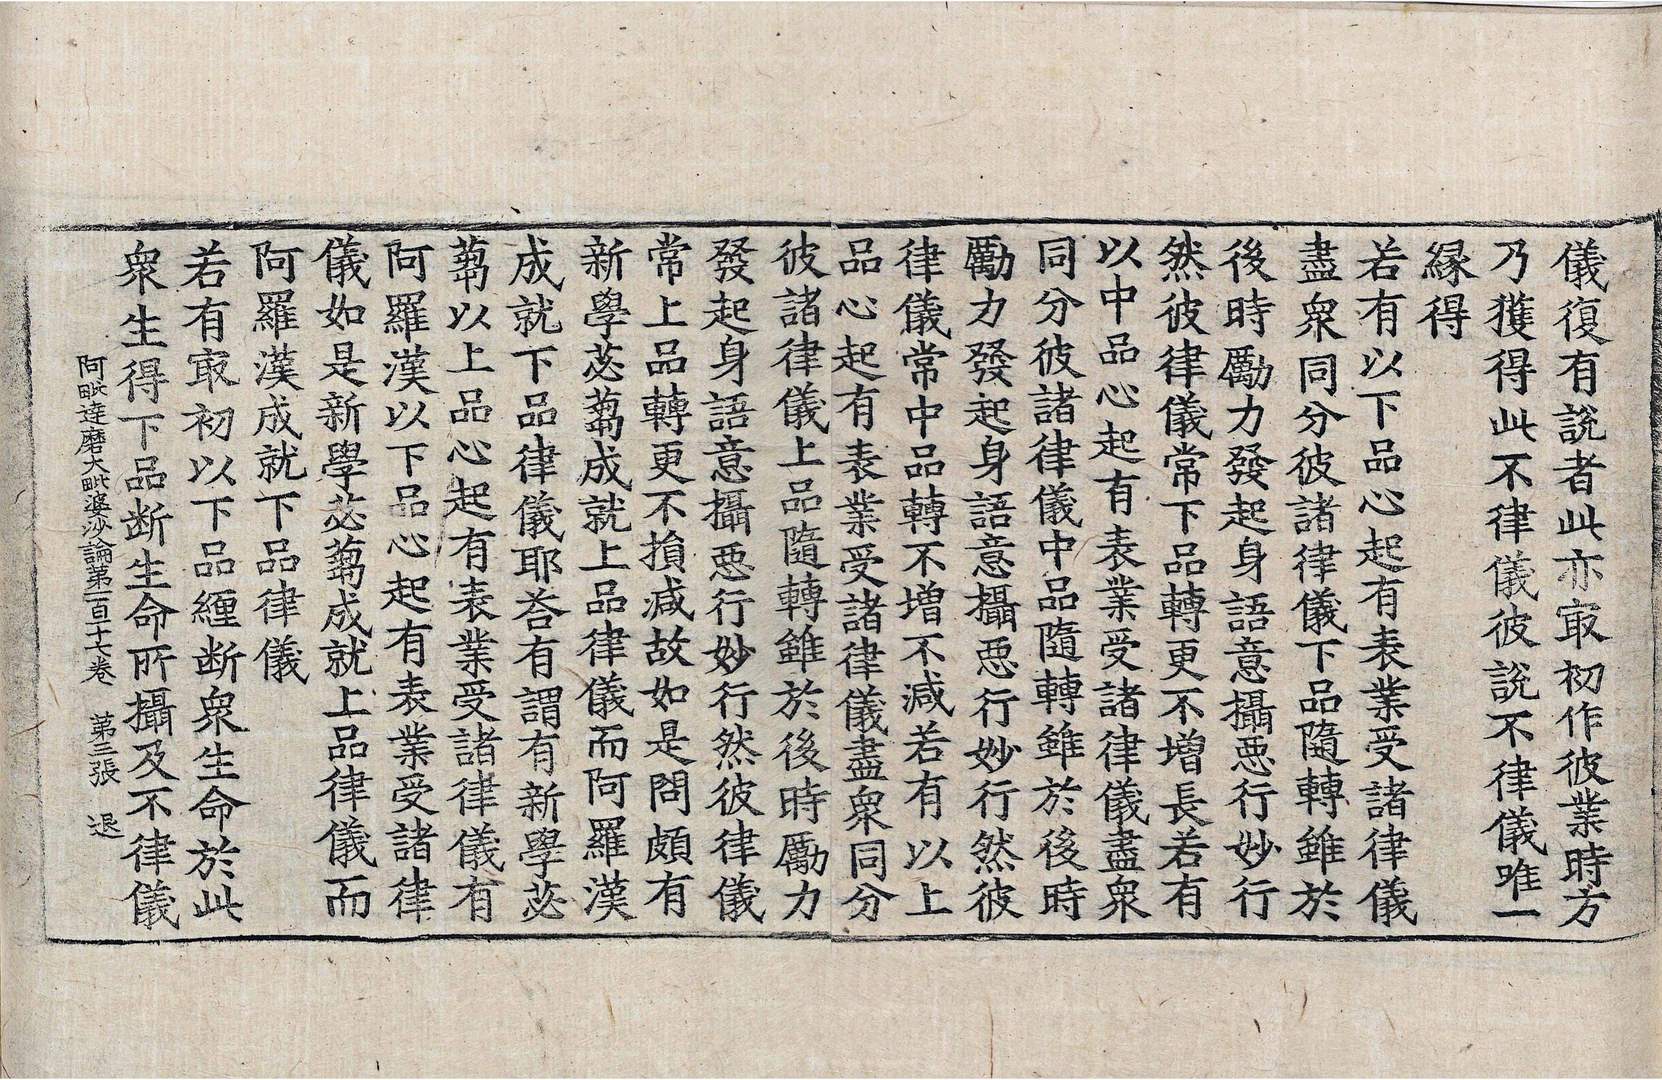 儀復有說者此亦㝡初作彼業時方
乃獲得此不律儀彼說不律儀唯一
緣得
若有以下品心起有表業受諸律儀
盡衆同分彼諸律儀下品隨轉雖於
後時勵力發起身語意攝惡行妙行
然彼律儀常下品轉更不增長若有
以中品心起有表業受諸律儀盡衆
同分彼諸律儀中品隨轉雖於後時
勵力發起身語意攝惡行妙行然彼
律儀常中品轉不增不減若有以上
品心起有表業受諸律儀盡衆同分
彼諸律儀上品隨轉雖於後時勵力
發起身語意攝惡行妙行然彼律儀
常上品轉更不損減故如是問頗有
新學苾蒭成就上品律儀而阿羅漢
成就下品律儀耶荅有謂有新學苾
蒭以上品心起有表業受諸律儀有
阿羅漢以下品心起有表業受諸律
儀如是新學苾蒭成就上品律儀而
阿羅漢成就下品律儀
若有㝡初以下品纏断衆生命於此
衆生得下品断生命所攝及不律儀
阿毗達磨大毗婆沙論第一百十七卷 第三張 退